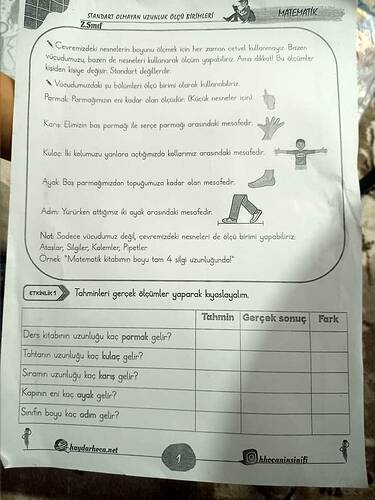 STANDART OLMAYAN UZUNLUK ÖLÇÜ BİRİMLERİ
MATEMATİK
2.Sınıf
Çevremizdeki nesnelerin boyunu ölçmek için her zaman cetvel kullanmayız. Bazen
vücudumuzu, bazen de nesneleri kullanarak ölçüm yapabiliriz. Ama dikkat! Bu ölçümler
kişiden kişiye değişir. Standart değillerdir.
Vücudumuzdaki şu bölümleri ölçü birimi olarak kullanabiliriz.
Parmak: Parmağımızın eni kadar olan ölçüdür. (Küçük nesneler için)
Karış: Elimizin baş parmağı ile serçe parmağı arasındaki mesafedir.
Kulaç: İki kolumuzu yanlara açtığımızda kollarımız arasındaki mesafedir.
Ayak: Baş parmağımızdan topuğumuza kadar olan mesafedir.
Adım: Yürürken attığımız iki ayak arasındaki mesafedir.
Not: Sadece vücudumuz değil, çevremizdeki nesneleri de ölçü birimi yapabiliriz:
Ataşlar, Silgiler, Kalemler, Pipetler
Örnek: "Matematik kitabımın boyu tam 4 silgi uzunluğunda!"
ETKİNLİK 1
Tahminleri gerçek ölçümler yaparak kıyaslayalım.
Tahmin Gerçek sonuç Fark
Ders kitabının uzunluğu kaç parmak gelir?
Tahtanın uzunluğu kaç kulaç gelir?
Sıramın uzunluğu kaç karış gelir?
Kapının eni kaç ayak gelir?
Sınıfın boyu kaç adım gelir?
haydarhoca.net
1
hhocaninsinifi